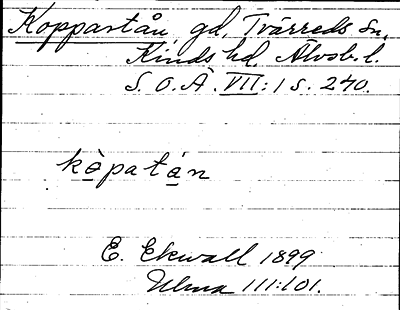 Kopparstån gd, Tvärreds sn,
Kinds hd. Älvsb. l.
S. O. Ä. VII:1 s. 240.
kòpatán
E. Ekwall 1899
Ulma 111:101.